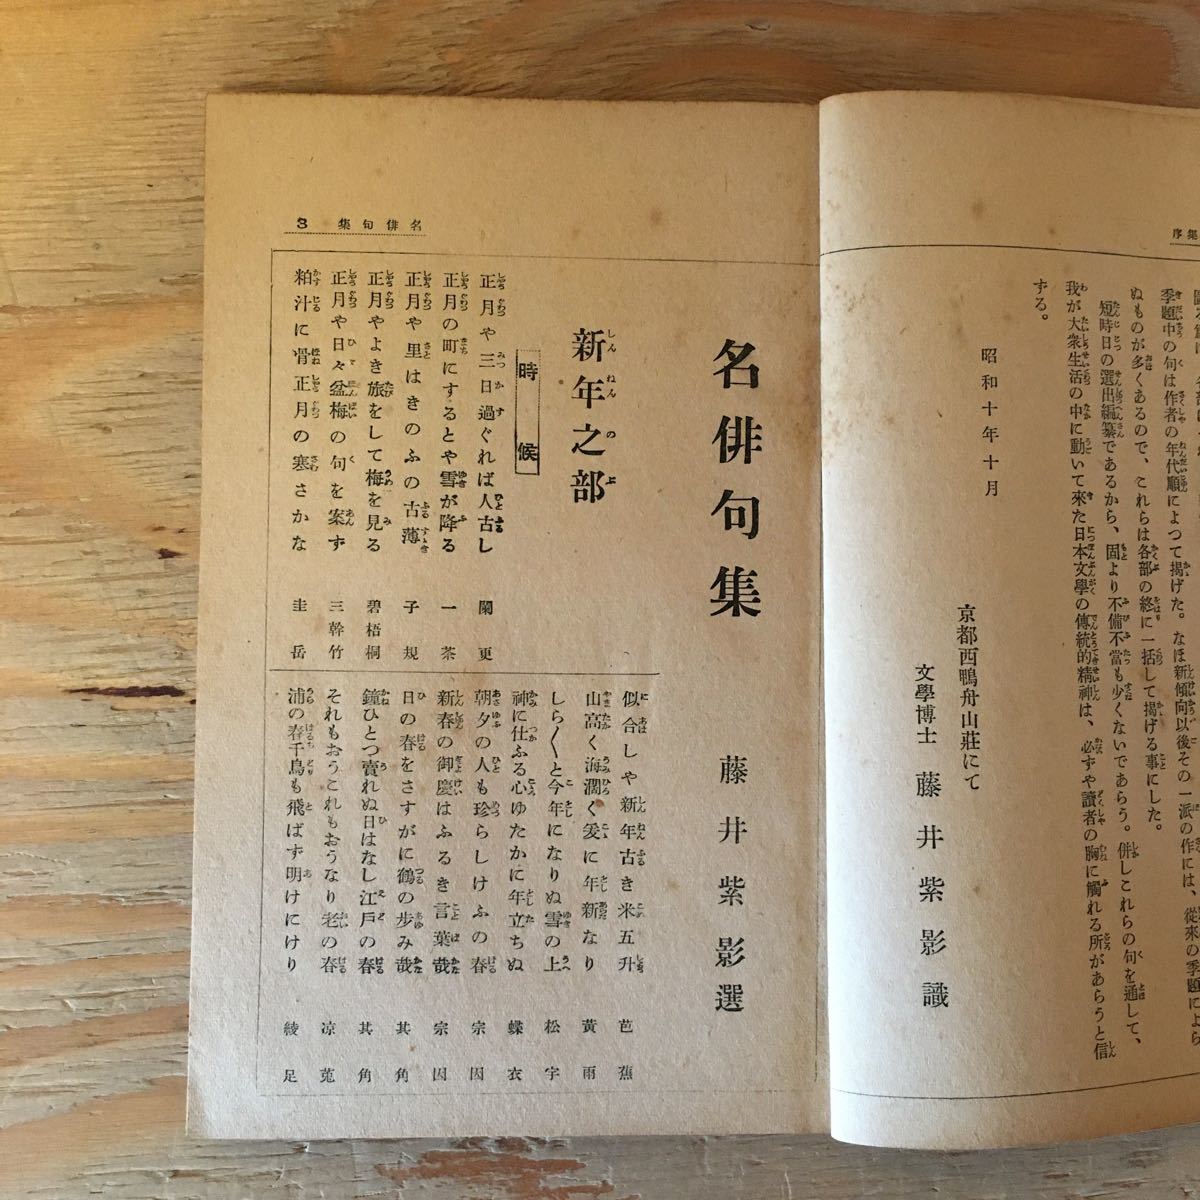 集序
季題中の句は作者の年代順によつて掲げた。なほ新傾向以後その一派の作には、從來の季題によら
ぬものが多くあるので、これらは各部の終に一括して掲げる事にした。
短時日の選出編纂であるから、固より不備不當も少くないであらう。併しこれらの句を通して、
我が大衆生活の中に動いて來た日本文學の傳統的精神は、必ずや讀者の胸に觸れる所があらうと信
ずる。
昭和十年十月
京都西鴨舟山莊にて
文學博士 藤井紫影識
名俳句集 3
名俳句集 藤井紫影選
新年之部
時候
正月や三日過ぐれば人古し 闌更
正月の町にするとや雪が降る 一茶
正月や里はきのふの古薄 子規
正月やよき旅をして梅を見る 碧梧桐
正月や日々盆梅の句を案ず 三幹竹
粕汁に骨正月の寒さかな 圭岳
似合しや新年古き米五升 芭蕉
山高く海濶く爰に年新なり 黃雨
しら〱と今年になりぬ雪の上 松宇
神に仕ふる心ゆたかに年立ちぬ 蝶衣
朝夕の人も珍らしけふの春 宗因
新春の御慶はふるき言葉哉 宗因
日の春をさすがに鶴の歩み哉 其角
鐘ひとつ賣れぬ日はなし江戸の春 其角
それもおうこれもおうなり老の春 凉菟
浦の春千鳥も飛ばず明けにけり 綾足